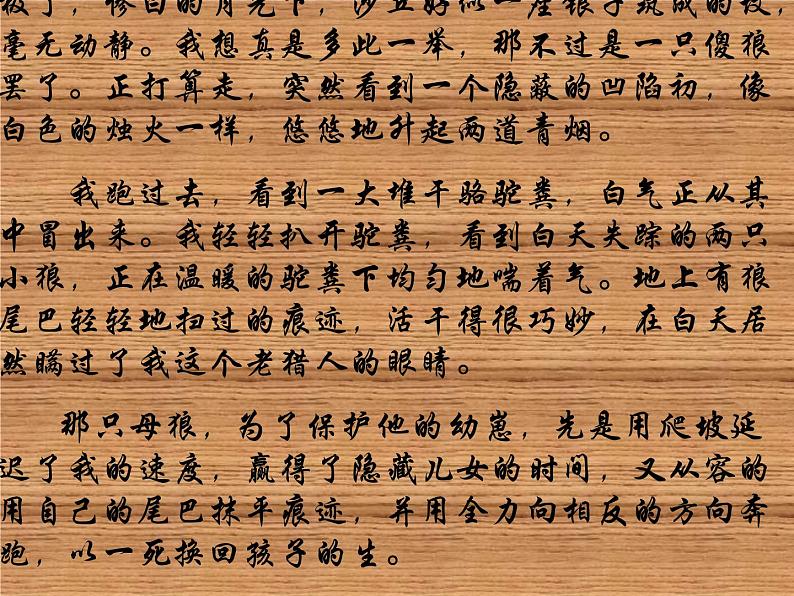 极了，惨白的月光下，沙丘好似一座银子筑成的坟，
毫无动静。我想真是多此一举，那不过是一只傻狼
罢了。正打算走，突然看到一个隐蔽的凹陷初，像
白色的烛火一样，悠悠地升起两道青烟。
我跑过去，看到一大堆干骆驼粪，白气正从其
中冒出来。我轻轻扒开驼粪，看到白天失踪的两只
小狼，正在温暖的驼粪下均匀地喘着气。地上有狼
尾巴轻轻地扫过的痕迹，活干得很巧妙，在白天居
然瞒过了我这个老猎人的眼睛。
那只母狼，为了保护他的幼崽，先是用爬坡延
迟了我的速度，赢得了隐藏儿女的时间，又从容的
用自己的尾巴抹平痕迹，并用全力向相反的方向奔
跑，以一死换回孩子的生。